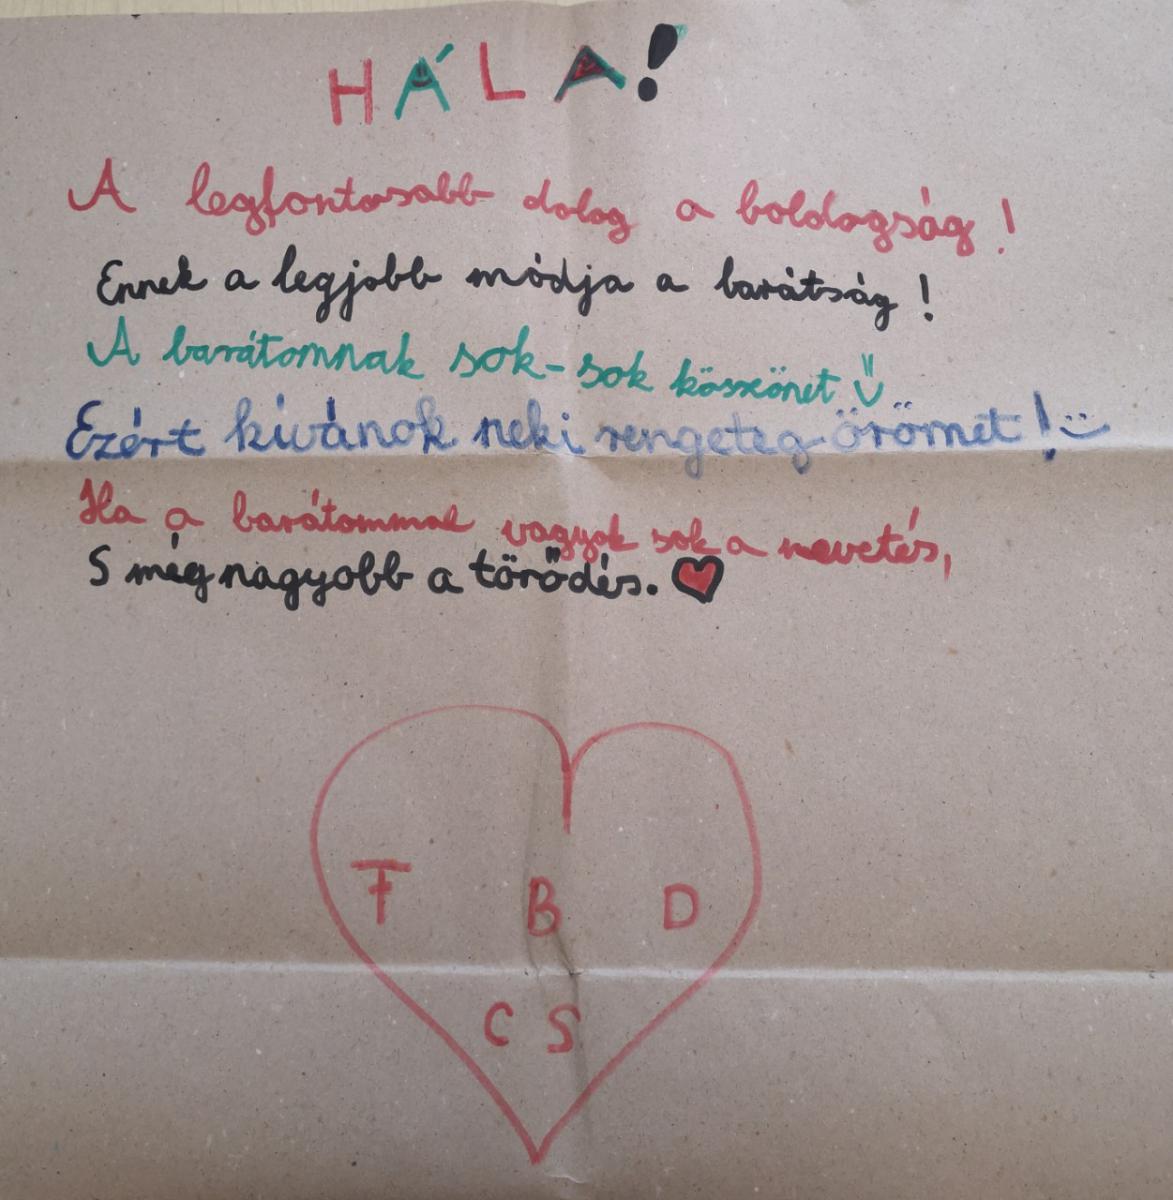 HÁLA!
A legfontosabb dolog a boldogság!
Ennek a legjobb módja a barátság!
A barátomnak sok-sok köszönet
Ezért kívánok neki rengeteg örömet!
Ha a barátommal vagyok sok a nevetés,
S még nagyobb a törődés.
F B D
C S